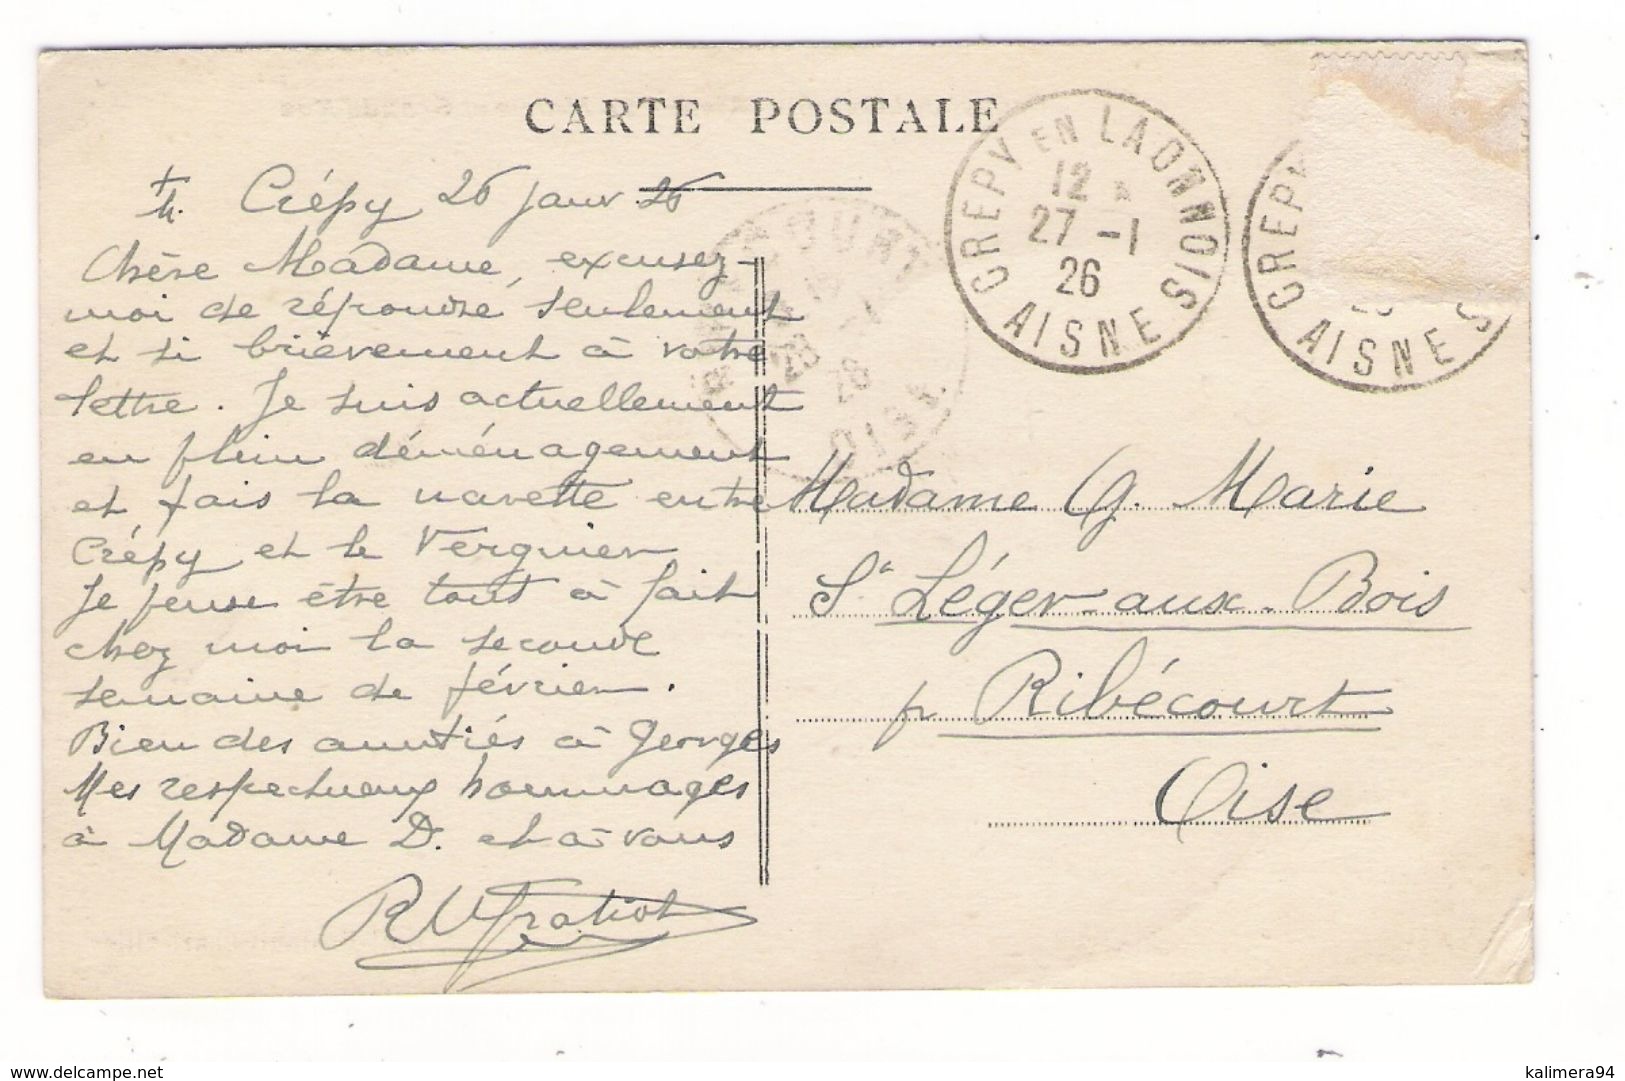 CARTE POSTALE
Crépy 26 janv. 26
Chère Madame, excusez-
moi de répondre seulement
et si brièvement à votre
lettre. Je suis actuellement
en plein déménagement
et fais la navette entre
Crépy et le Verguier
Je pense être tout à fait
chez moi la seconde
semaine de février.
Bien des amitiés à Georges
Mes respectueux hommages
à Madame D. et à vous
CREPY EN LAONNOIS
12
27 -1
26
AISNE
CREPY
AISNE
OISE
Madame G. Marie
St Léger-aux-Bois
pr Ribécourt
Oise
www.delcampe.net
kalimera94